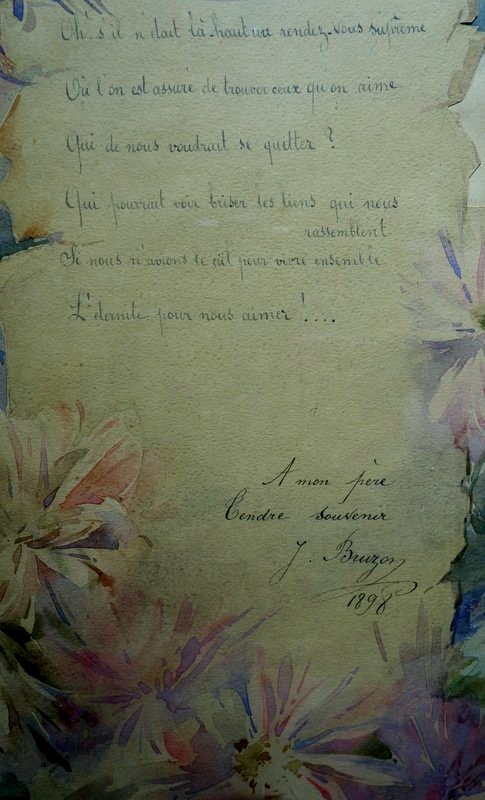 Oh! s'il n'était là-haut un rendez-vous suprême
Où l'on est assuré de trouver ceux qu'on aime
Qui de nous voudrait se quitter ?
Qui pourrait voir briser les liens qui nous
rassemblent
Si nous n'avions le ciel pour vivre ensemble
L'éternité pour nous aimer !....
A mon père
Tendre souvenir
J. Bruzon
1898